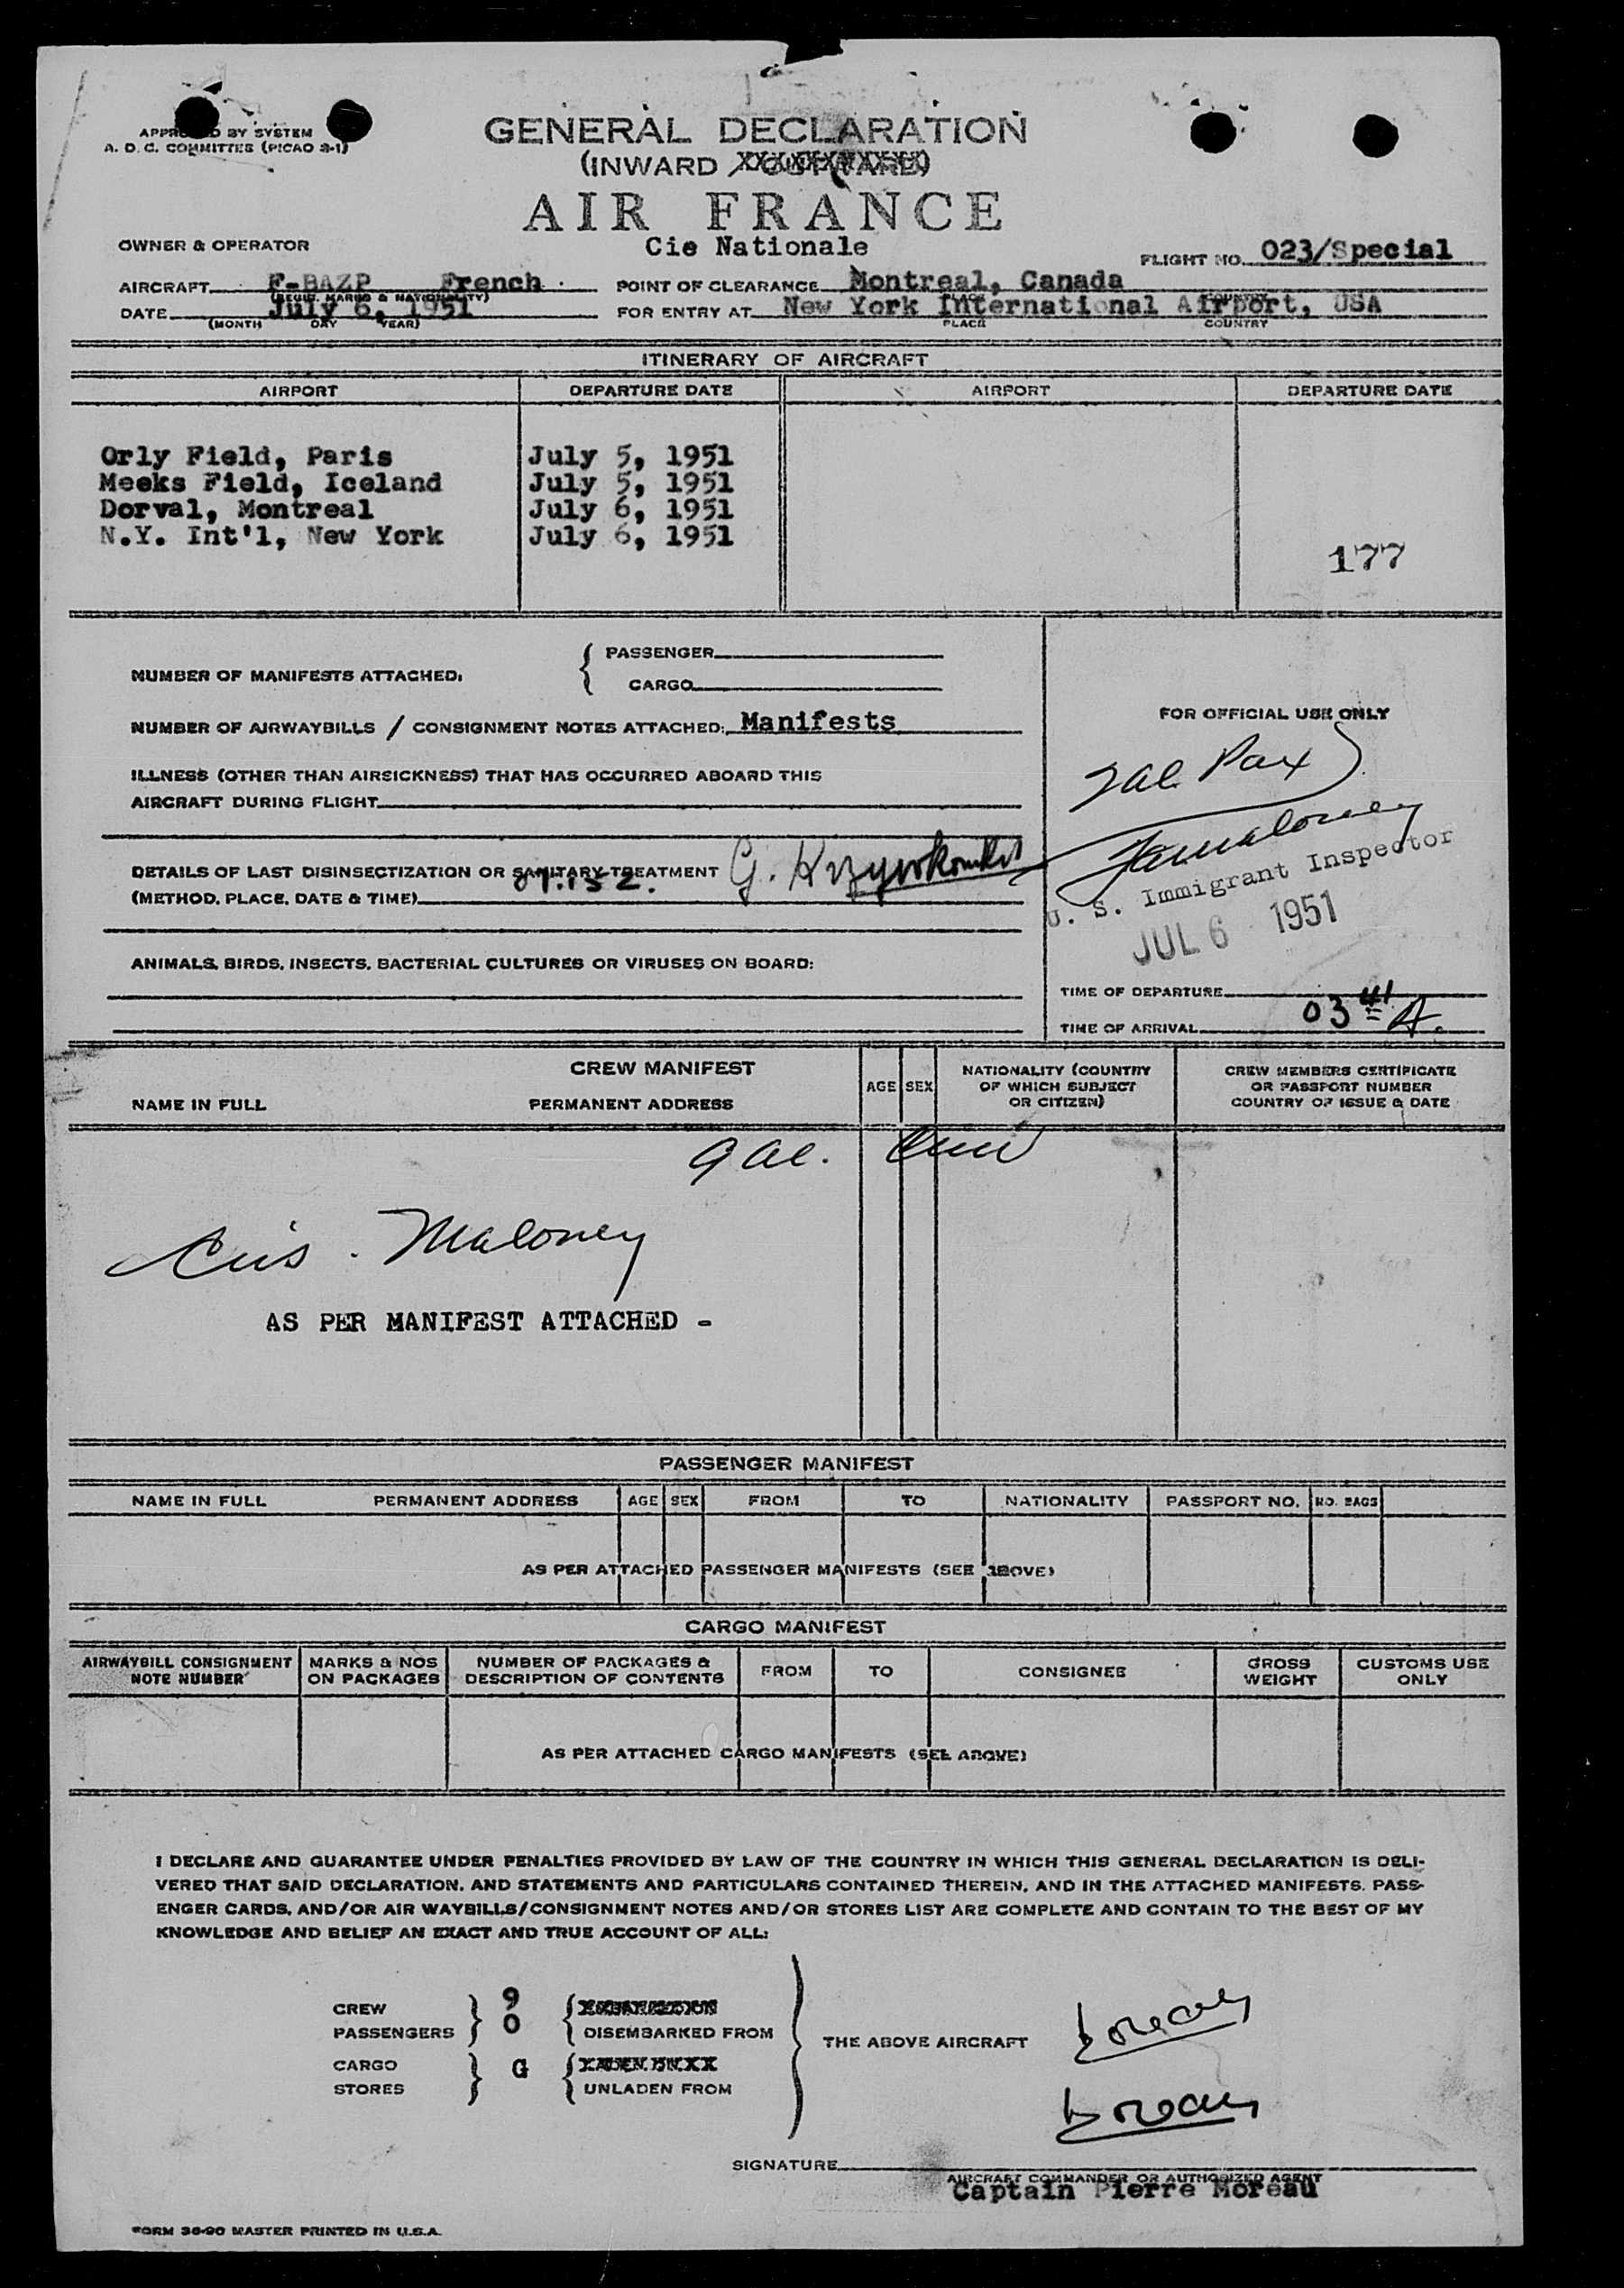 APPROVED BY SYSTEM
A. D. C. COMMITTEE (PICAO 3-1)
GENERAL DECLARATION
(INWARD / OUTWARD)
AIR FRANCE
OWNER & OPERATOR Cie Nationale
FLIGHT NO. 023/Special
AIRCRAFT F-BAZP French POINT OF CLEARANCE Montreal, Canada
(REGIS. MARKS & NATIONALITY) PLACE COUNTRY
DATE July 6, 1951 FOR ENTRY AT New York International Airport, USA
(MONTH DAY YEAR) PLACE COUNTRY
ITINERARY OF AIRCRAFT
AIRPORT DEPARTURE DATE AIRPORT DEPARTURE DATE
Orly Field, Paris July 5, 1951
Meeks Field, Iceland July 5, 1951
Dorval, Montreal July 6, 1951
N.Y. Int'l, New York July 6, 1951
177
NUMBER OF MANIFESTS ATTACHED: { PASSENGER
CARGO
NUMBER OF AIRWAYBILLS / CONSIGNMENT NOTES ATTACHED: Manifests
ILLNESS (OTHER THAN AIRSICKNESS) THAT HAS OCCURRED ABOARD THIS
AIRCRAFT DURING FLIGHT
DETAILS OF LAST DISINSECTIZATION OR SANITARY TREATMENT
(METHOD, PLACE, DATE & TIME)
ANIMALS, BIRDS, INSECTS, BACTERIAL CULTURES OR VIRUSES ON BOARD:
FOR OFFICIAL USE ONLY
Pax
U. S. Immigrant Inspector
JUL 6 1951
TIME OF DEPARTURE
TIME OF ARRIVAL 03 41 A.
CREW MANIFEST
NAME IN FULL PERMANENT ADDRESS AGE SEX NATIONALITY (COUNTRY
OF WHICH SUBJECT
OR CITIZEN)
CREW MEMBERS CERTIFICATE
OR PASSPORT NUMBER
COUNTRY OF ISSUE & DATE
Maloney
AS PER MANIFEST ATTACHED -
PASSENGER MANIFEST
NAME IN FULL PERMANENT ADDRESS AGE SEX FROM TO NATIONALITY PASSPORT NO. NO. BAGS
AS PER ATTACHED PASSENGER MANIFESTS (SEE ABOVE)
CARGO MANIFEST
AIRWAYBILL CONSIGNMENT
NOTE NUMBER
MARKS & NOS
ON PACKAGES
NUMBER OF PACKAGES &
DESCRIPTION OF CONTENTS
FROM TO CONSIGNEE
GROSS
WEIGHT
CUSTOMS USE
ONLY
AS PER ATTACHED CARGO MANIFESTS (SEE ABOVE)
I DECLARE AND GUARANTEE UNDER PENALTIES PROVIDED BY LAW OF THE COUNTRY IN WHICH THIS GENERAL DECLARATION IS DELI-
VERED THAT SAID DECLARATION, AND STATEMENTS AND PARTICULARS CONTAINED THEREIN, AND IN THE ATTACHED MANIFESTS, PASS-
ENGER CARDS, AND/OR AIR WAYBILLS/CONSIGNMENT NOTES AND/OR STORES LIST ARE COMPLETE AND CONTAIN TO THE BEST OF MY
KNOWLEDGE AND BELIEF AN EXACT AND TRUE ACCOUNT OF ALL:
CREW 9
PASSENGERS 0 DISEMBARKED FROM
THE ABOVE AIRCRAFT
CARGO G
STORES UNLADEN FROM
SIGNATURE
AIRCRAFT COMMANDER OR AUTHORIZED AGENT
Captain Pierre Moreau
FORM 36-90 MASTER PRINTED IN U.S.A.